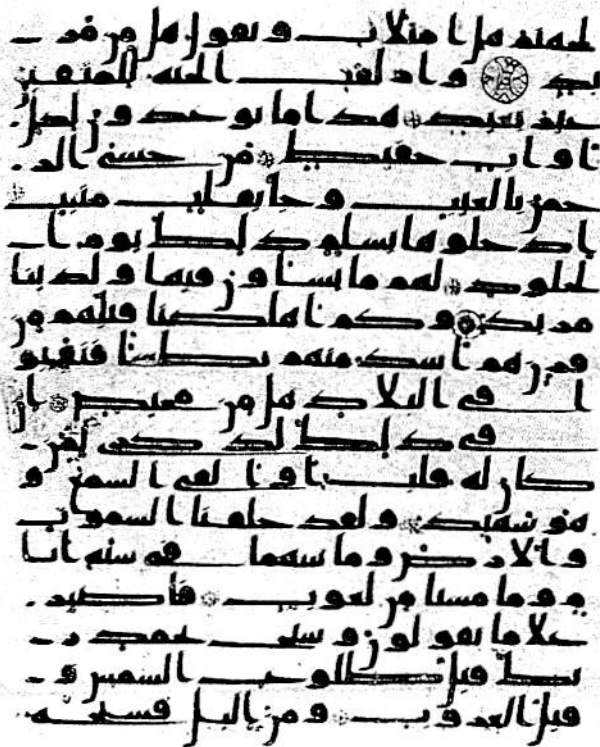 لجهنم هل امتلات وتقول هل من مز
يد وازلفت الجنه للمتقين
غير بعيد هذا ما توعدون لكل
اواب حفيظ من خشي الر
حمن بالغيب وجا بقلب منيب
ادخلوها بسلم ذلك يوم ا
لخلود لهم ما يشاون فيها ولدينا
مزيد وكم اهلكنا قبلهم من
قرن هم اشد منهم بطشا فنقبو
ا في البلاد هل من محيص ان
في ذلك لذكرى لمن
كان له قلب او القى السمع و
هو شهيد ولقد خلقنا السموت
والارض وما بينهما في سته ايا
م وما مسنا من لغوب فاصبر
على ما يقولون وسبح بحمد ر
بك قبل طلوع الشمس و
قبل الغروب ومن اليل فسبحه